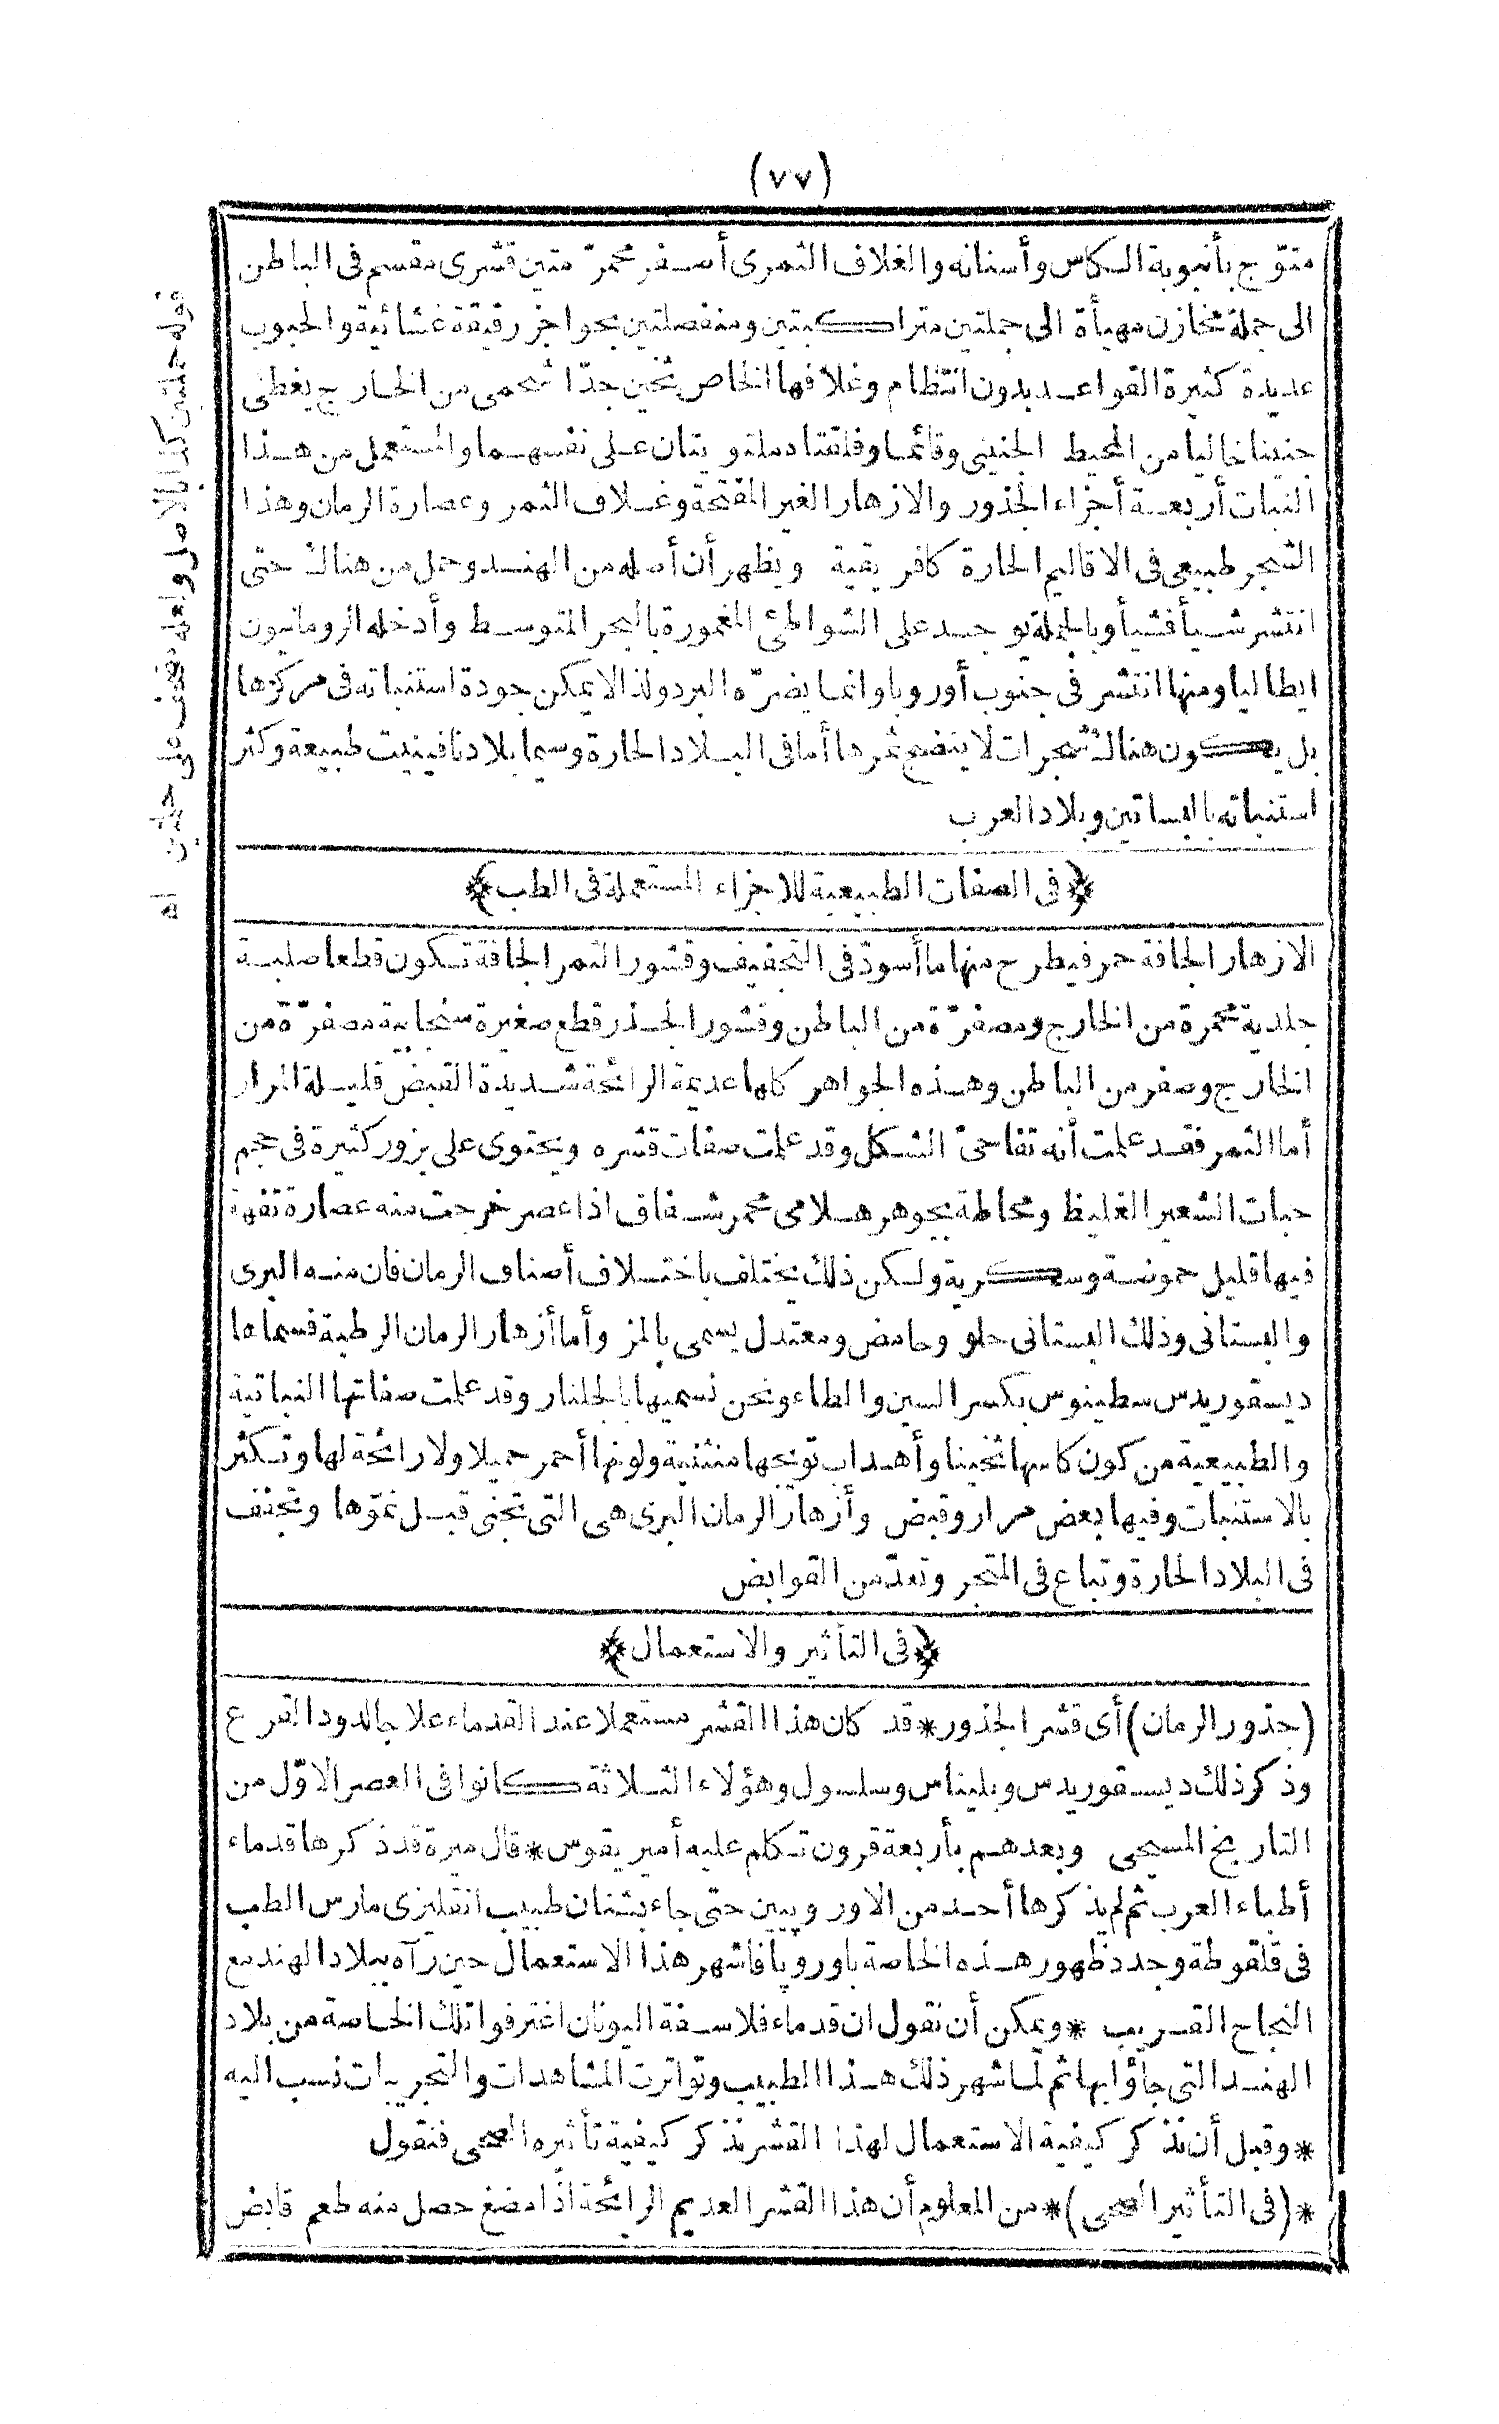 (٧٧)
متوّج بأنبوبة الكاس وأسنانه والغلاف الثمرى أصفر محمرّ متين قشرى مقسم فى الباطن
الى جملة مخازن مهيأة الى جملتين متراكبتين ومنفصلتين بحواجز رقيقة غشائية والحبوب
عديدة كثيرة القواعد بدون انتظام وغلافها الخاص ثخين جدّا شحمى من الخارج يغطى
جنينا خاليا من المحيط الجنينى وقائما وفلقتاه ملتويتان على نفسهما والمستعمل من هذا
النبات أربعة أجزاء الجذور والازهار الغير المفتحة وغلاف الثمر وعصارة الرمان وهذا
الشجر طبيعى فى الاقاليم الحارة كافريقية ويظهر أن أصله من الهند وحمل من هناك حتى
انتشر شيأ فشيأ وبالجملة يوجد على الشواطئ المغمورة بالبحر المتوسط وأدخله الرومانيون
ايطاليا ومنها انتشر فى جنوب أوروبا وانما يضرّه البرد ولذا لا يمكن جودة استنباته فى مركزها
بل يكون هناك شجيرات لا ينضج ثمرها أما فى البلاد الحارة وسيما بلادنا فينبت طبيعة وكثر
استنباته بالبساتين وبلاد العرب
قوله جملتين كذا بالاصل ولعله تحريف من حملين اه
﴿فى الصفات الطبيعية للاجزاء المستعملة فى الطب﴾
الازهار الجافة حمر فيطرح منها ما أسودّ فى التجفيف وقشور الثمر الجافة تكون قطعا صلبة
جلدية محمرة من الخارج ومصفرّة من الباطن وقشور الجذر قطع صغيرة سنجابية مصفرّة من
الخارج وصفر من الباطن وهذه الجواهر كلها عديمة الرائحة شديدة القبض قليلة المرار
أما الثمر فقد علمت أنه تفاحىّ الشكل وقد علمت صفات قشره ويحتوى على بزور كثيرة فى حجم
حبات الشعير الغليظ ومحاطة بجوهر هلامى محمر شفاف اذا عصر خرجت منه عصارة تفهة
فيها قليل حموضة وسكرية ولكن ذلك يختلف باختلاف أصناف الرمان فان منه البرى
والبستانى وذلك البستانى حلو وحامض ومعتدل يسمى بالمز وأما أزهار الرمان الرطبة فسماها
ديسقوريدس سطينوس بكسر السين والطاء ونحن نسميها بالجلنار وقد علمت صفاتها النباتية
والطبيعية من كون كاسها ثخينا وأهداب تويجها منثنية ولونها أحمر جميلا ولا رائحة لها وتكثر
بالاستنبات وفيها بعض مرار وقبض وأزهار الرمان البرى هى التى تجنى قبل نموّها وتجفف
فى البلاد الحارة وتباع فى المتجر وتعدّ من القوابض
﴿فى التأثير والاستعمال﴾
(جذور الرمان) أى قشر الجذور * قد كان هذا القشر مستعملا عند القدماء علاجا للدود القرع
وذكر ذلك ديسقوريدس وبليناس وسلسول وهؤلاء الثلاثة كانوا فى العصر الاوّل من
التاريخ المسيحى وبعدهم بأربعة قرون تكلم عليه أمير يقوس * قال ميرة قد ذكرها قدماء
أطباء العرب ثم لم يذكرها أحد من الاوروپيين حتى جاء بشنان طبيب انقليزى مارس الطب
فى قلقوطة وجدد ظهور هذه الخاصة باوروپا فاشهر هذا الاستعمال حين رآه ببلاد الهند مع
النجاح القريب * ويمكن أن نقول ان قدماء فلاسفة اليونان اغترفوا تلك الخاصة من بلاد
الهند التى جاؤا بها ثم لما شهر ذلك هذا الطبيب وتواترت المشاهدات والتجربيات نسب اليه
* وقبل أن نذكر كيفية الاستعمال لهذا القشر نذكر كيفية تأثيره الصحى فنقول
* (فى التأثير الصحى) * من المعلوم أن هذا القشر العديم الرائحة اذا مضغ حصل منه طعم قابض